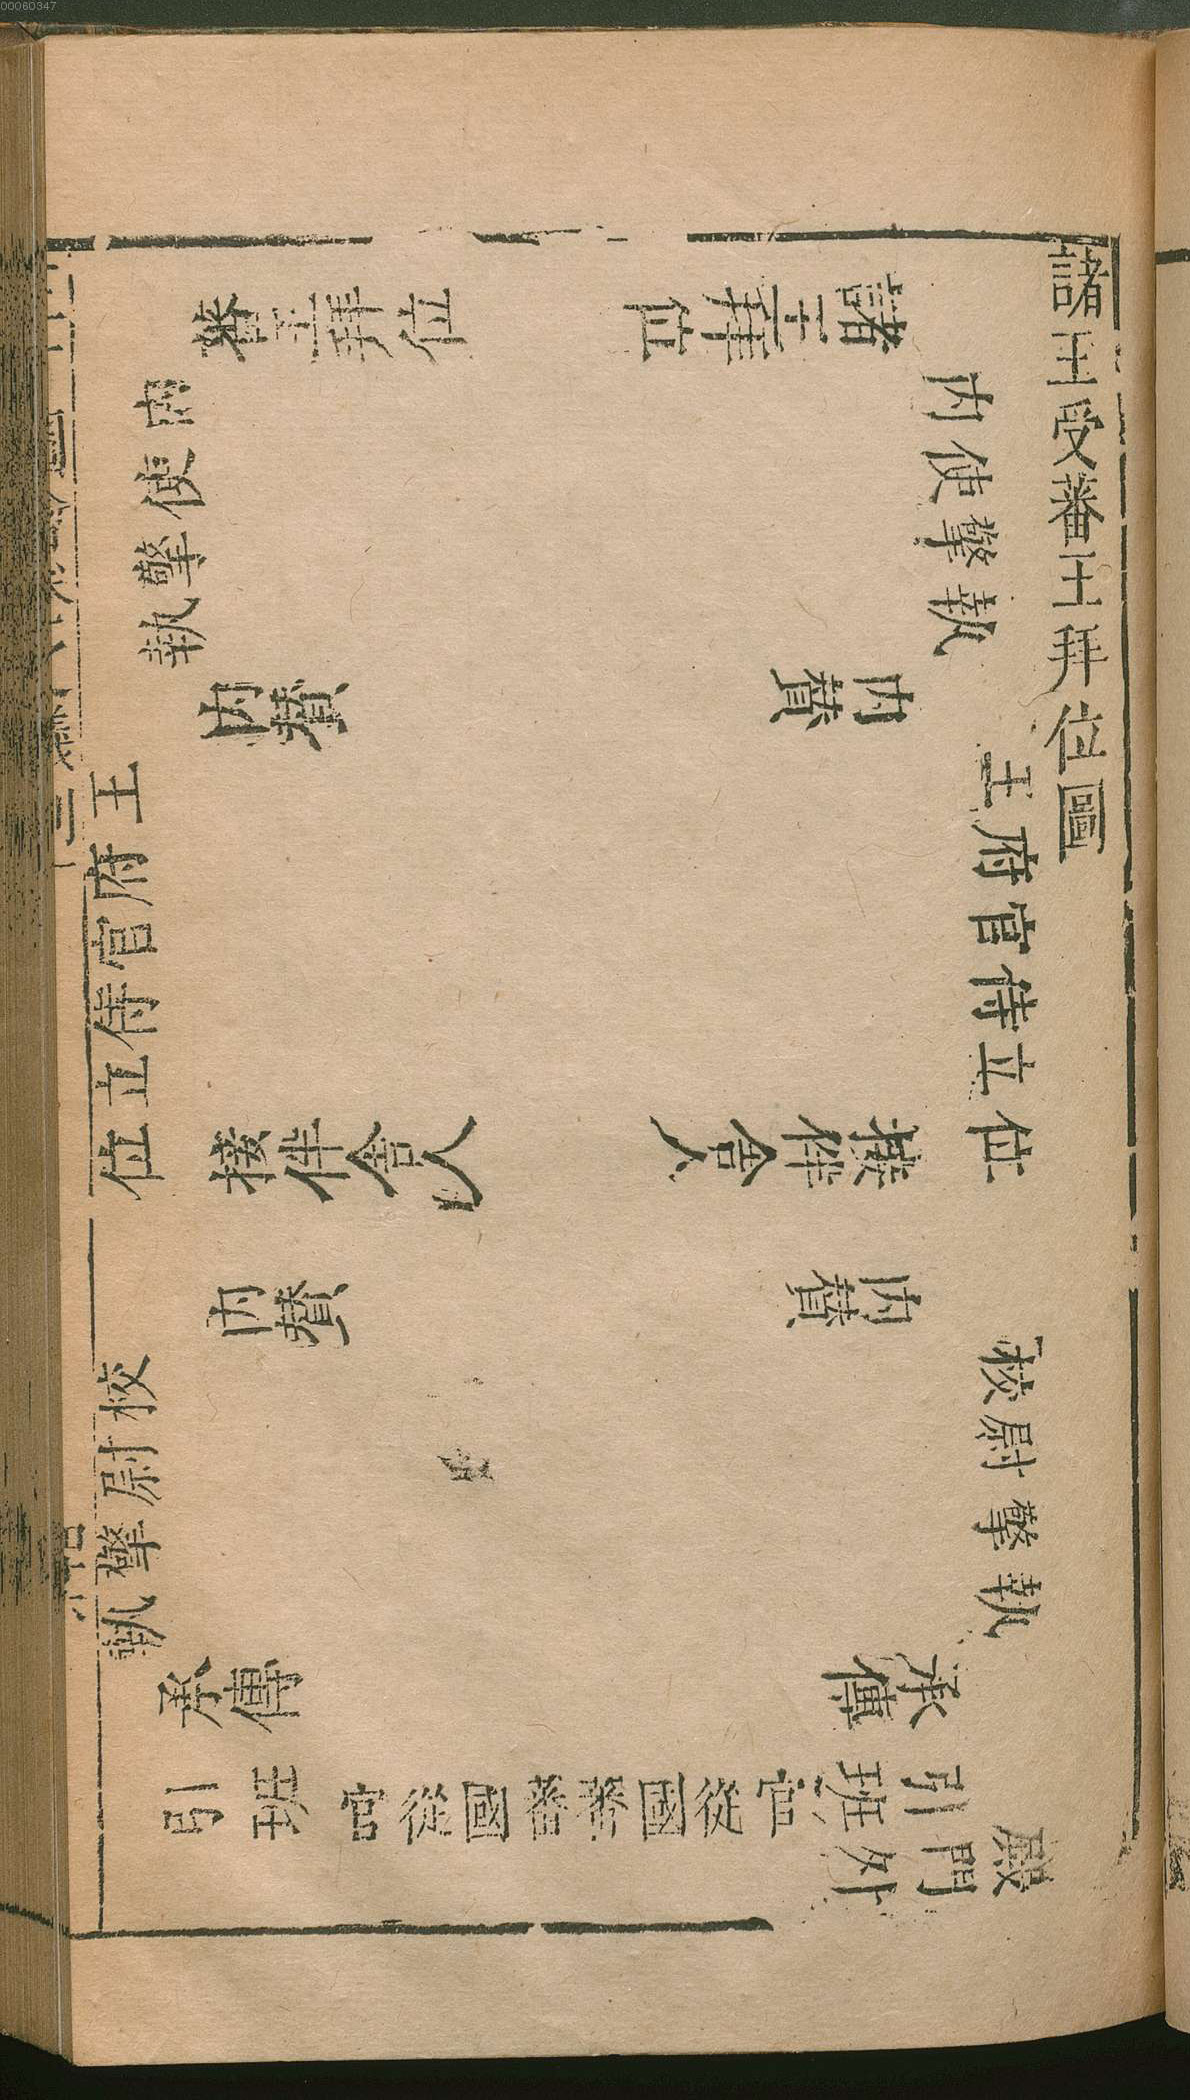 00060347
諸王受蕃王拜位圖
諸王拜位
蕃王拜位
內使擎執
內使擎執
內贊
內贊
王府官侍立位
王府官侍立位
接伴舍人
接伴舍人
內贊
內贊
校尉擎執
校尉擎執
承傳
承傳
引班
引班
蕃國從官
蕃國從官
殿門外